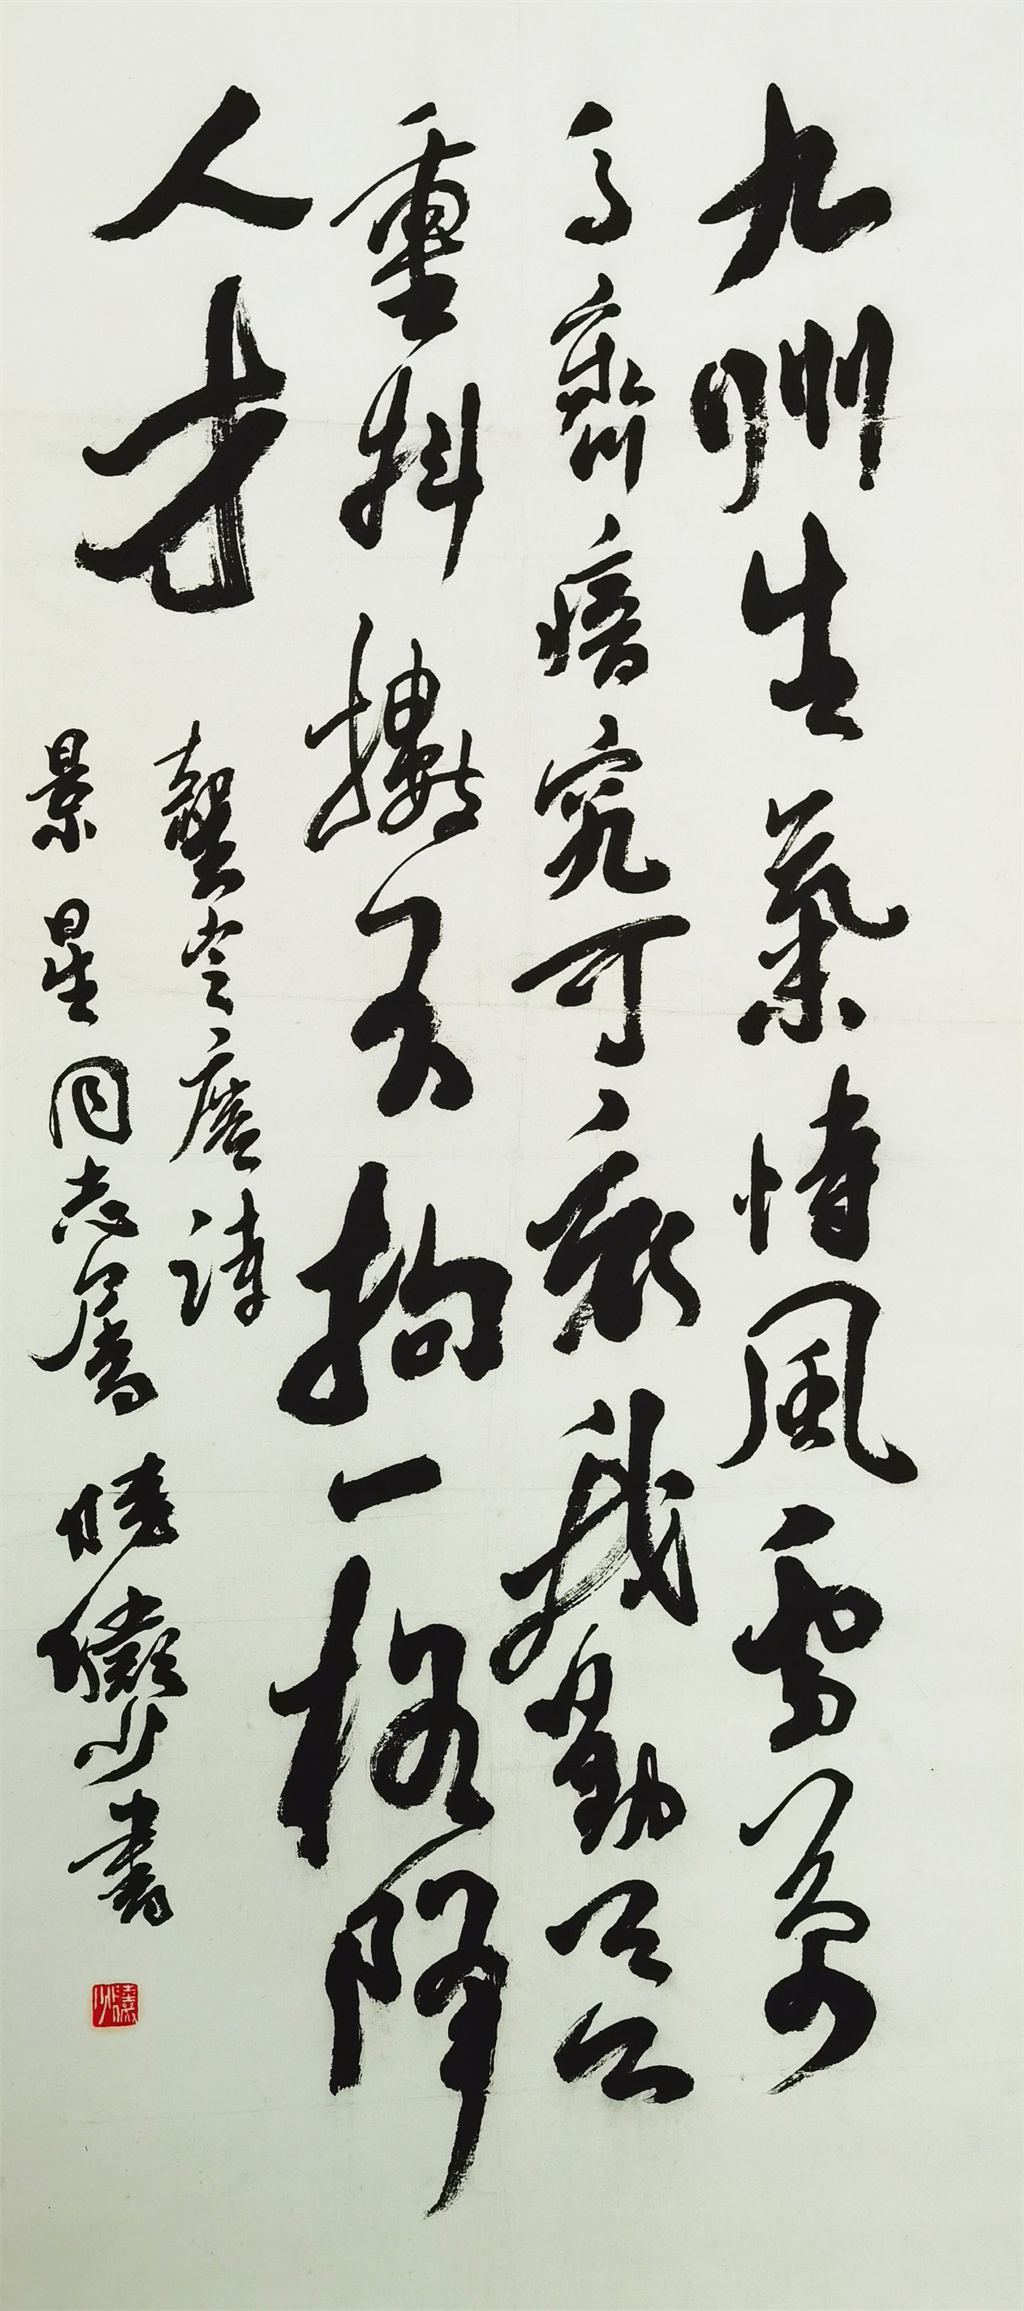 九州生氣恃風雷萬
馬齊瘖究可哀我勸天公
重抖擻不拘一格降
人才
龔定庵詩
景星同志屬 陸儼少書
儼少